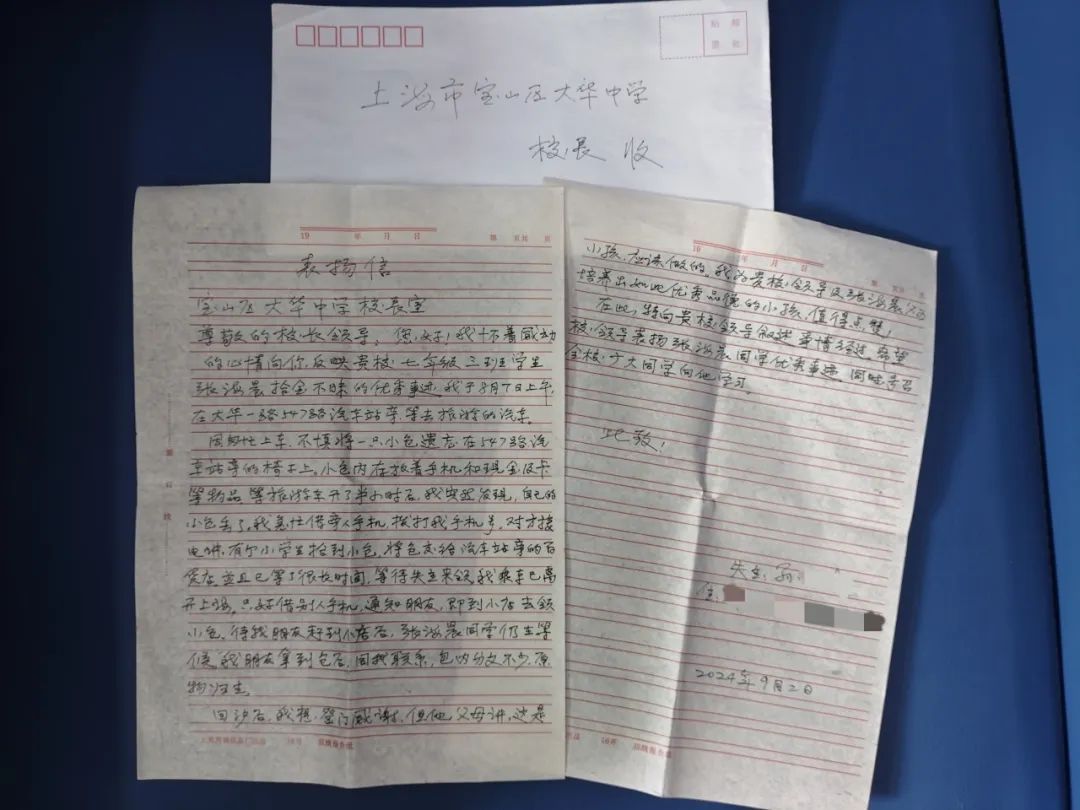 贴 邮
票 处
上海市宝山区大华中学
校长 收
19 年 月 日
第 页共 页
表扬信
宝山区大华中学校长室
尊敬的校长领导，您好，我怀着感动
的心情向你反映贵校七年级三班学生
张海晨拾金不昧的优秀事迹，我于8月7日上午，
在大华一路547路汽车站旁，等去旅游的汽车。
因匆忙上车，不慎将一只小包遗忘在547路汽
车站旁的椅子上，小包内存放着手机和现金及卡
等物品，等旅游车开了半小时后，我突然发现，自己的
小包丢了，我急忙借旁人手机，拨打我手机号，对方接
电话，有个小学生拾到小包，将包交给汽车站旁的百
货店，并且已等了很长时间，等待失主来领，我乘车已离
开上海，只好借别人手机，通知朋友，即到小店去领
小包，待我朋友赶到小店后，张海晨同学仍在等
候，我朋友拿到包后，同我联系，包内分文不少，原
物归主。
回沪后，我想登门感谢，但他父母讲，这是
16开
装
订
线
19 年 月 日
第 页共 页
小孩，应该做的，我为贵校领导及张海晨父母
培养出如此优秀品德的小孩，值得点赞！
在此，特向贵校领导叙述事情经过，希望
校领导表扬张海晨同学优秀事迹，同时号召
全校广大同学向他学习。
此致！
失主：孙
住：
2024年9月2日
16开